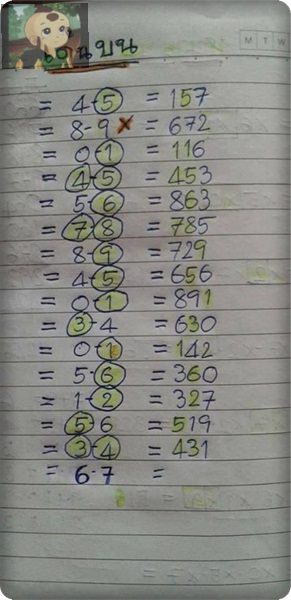 เด่นบน
M T W
= 4-5 = 157
= 8-9 x = 672
= 0-1 = 116
= 4-5 = 453
= 5-6 = 863
= 7-8 = 785
= 8-9 = 729
= 4-5 = 656
= 0-1 = 891
= 3-4 = 630
= 0-1 = 142
= 5-6 = 360
= 1-2 = 327
= 5-6 = 519
= 3-4 = 431
= 6-7 =